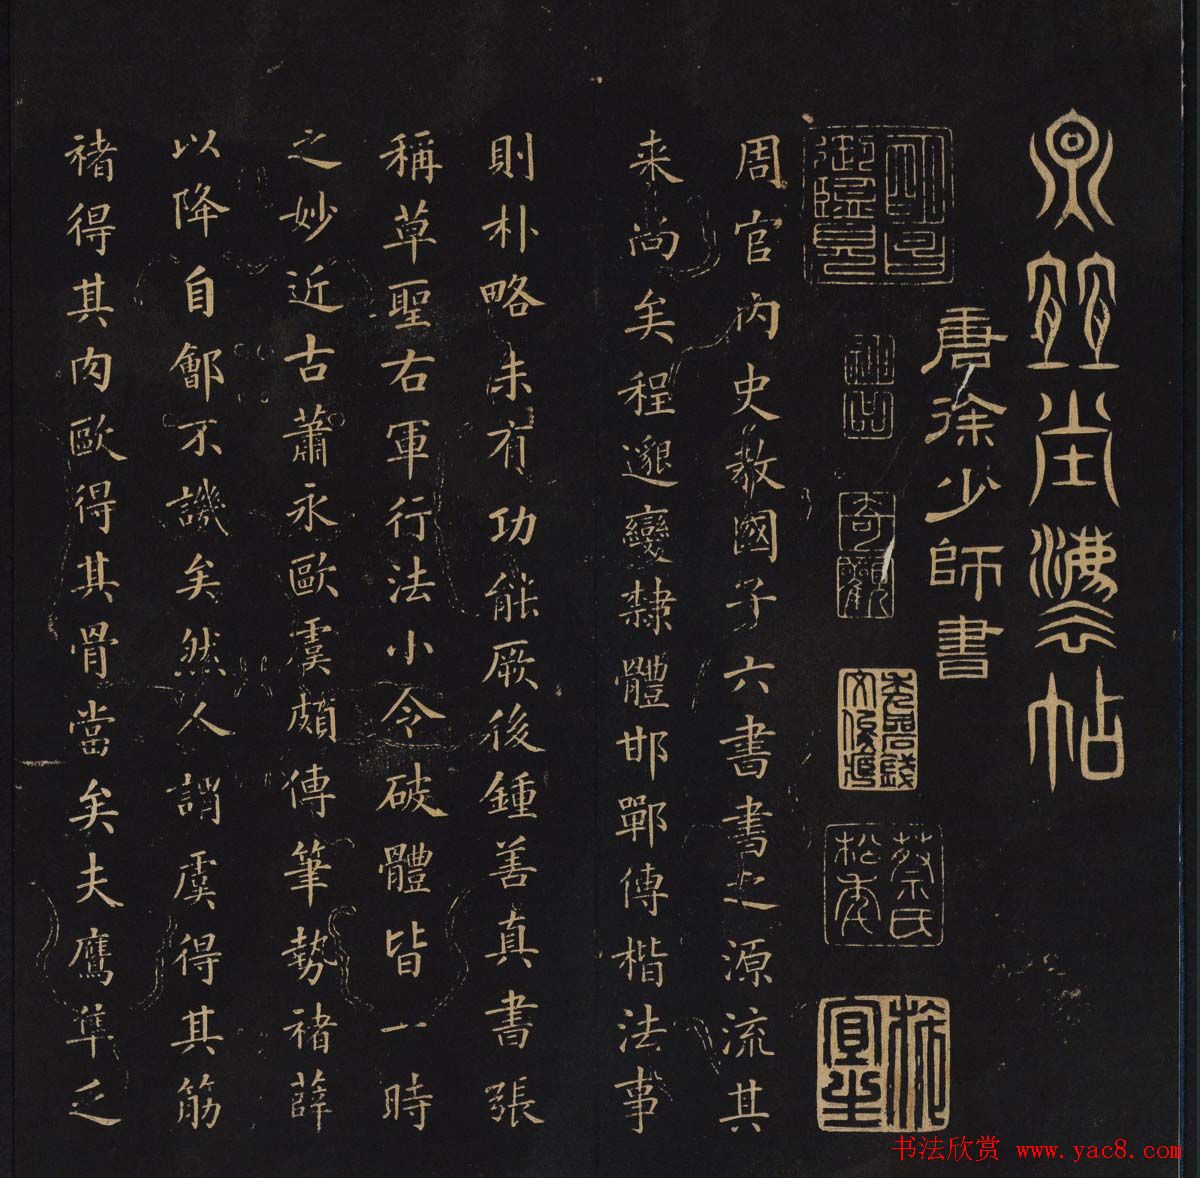 堂法帖
唐徐少師書
奇觀
蔡氏
松年
周官内史教國子六書書之源流其
来尚矣程邈變隸體邯鄲傳楷法事
則朴略未有功能厥後鍾善真書張
稱草聖右軍行法小令破體皆一時
之妙近古蕭永歐虞頗傳筆勢褚薛
以降自鄶不譏矣然人謂虞得其筋
褚得其肉歐得其骨當矣夫鷹隼乏
书法欣赏 www.yac8.com